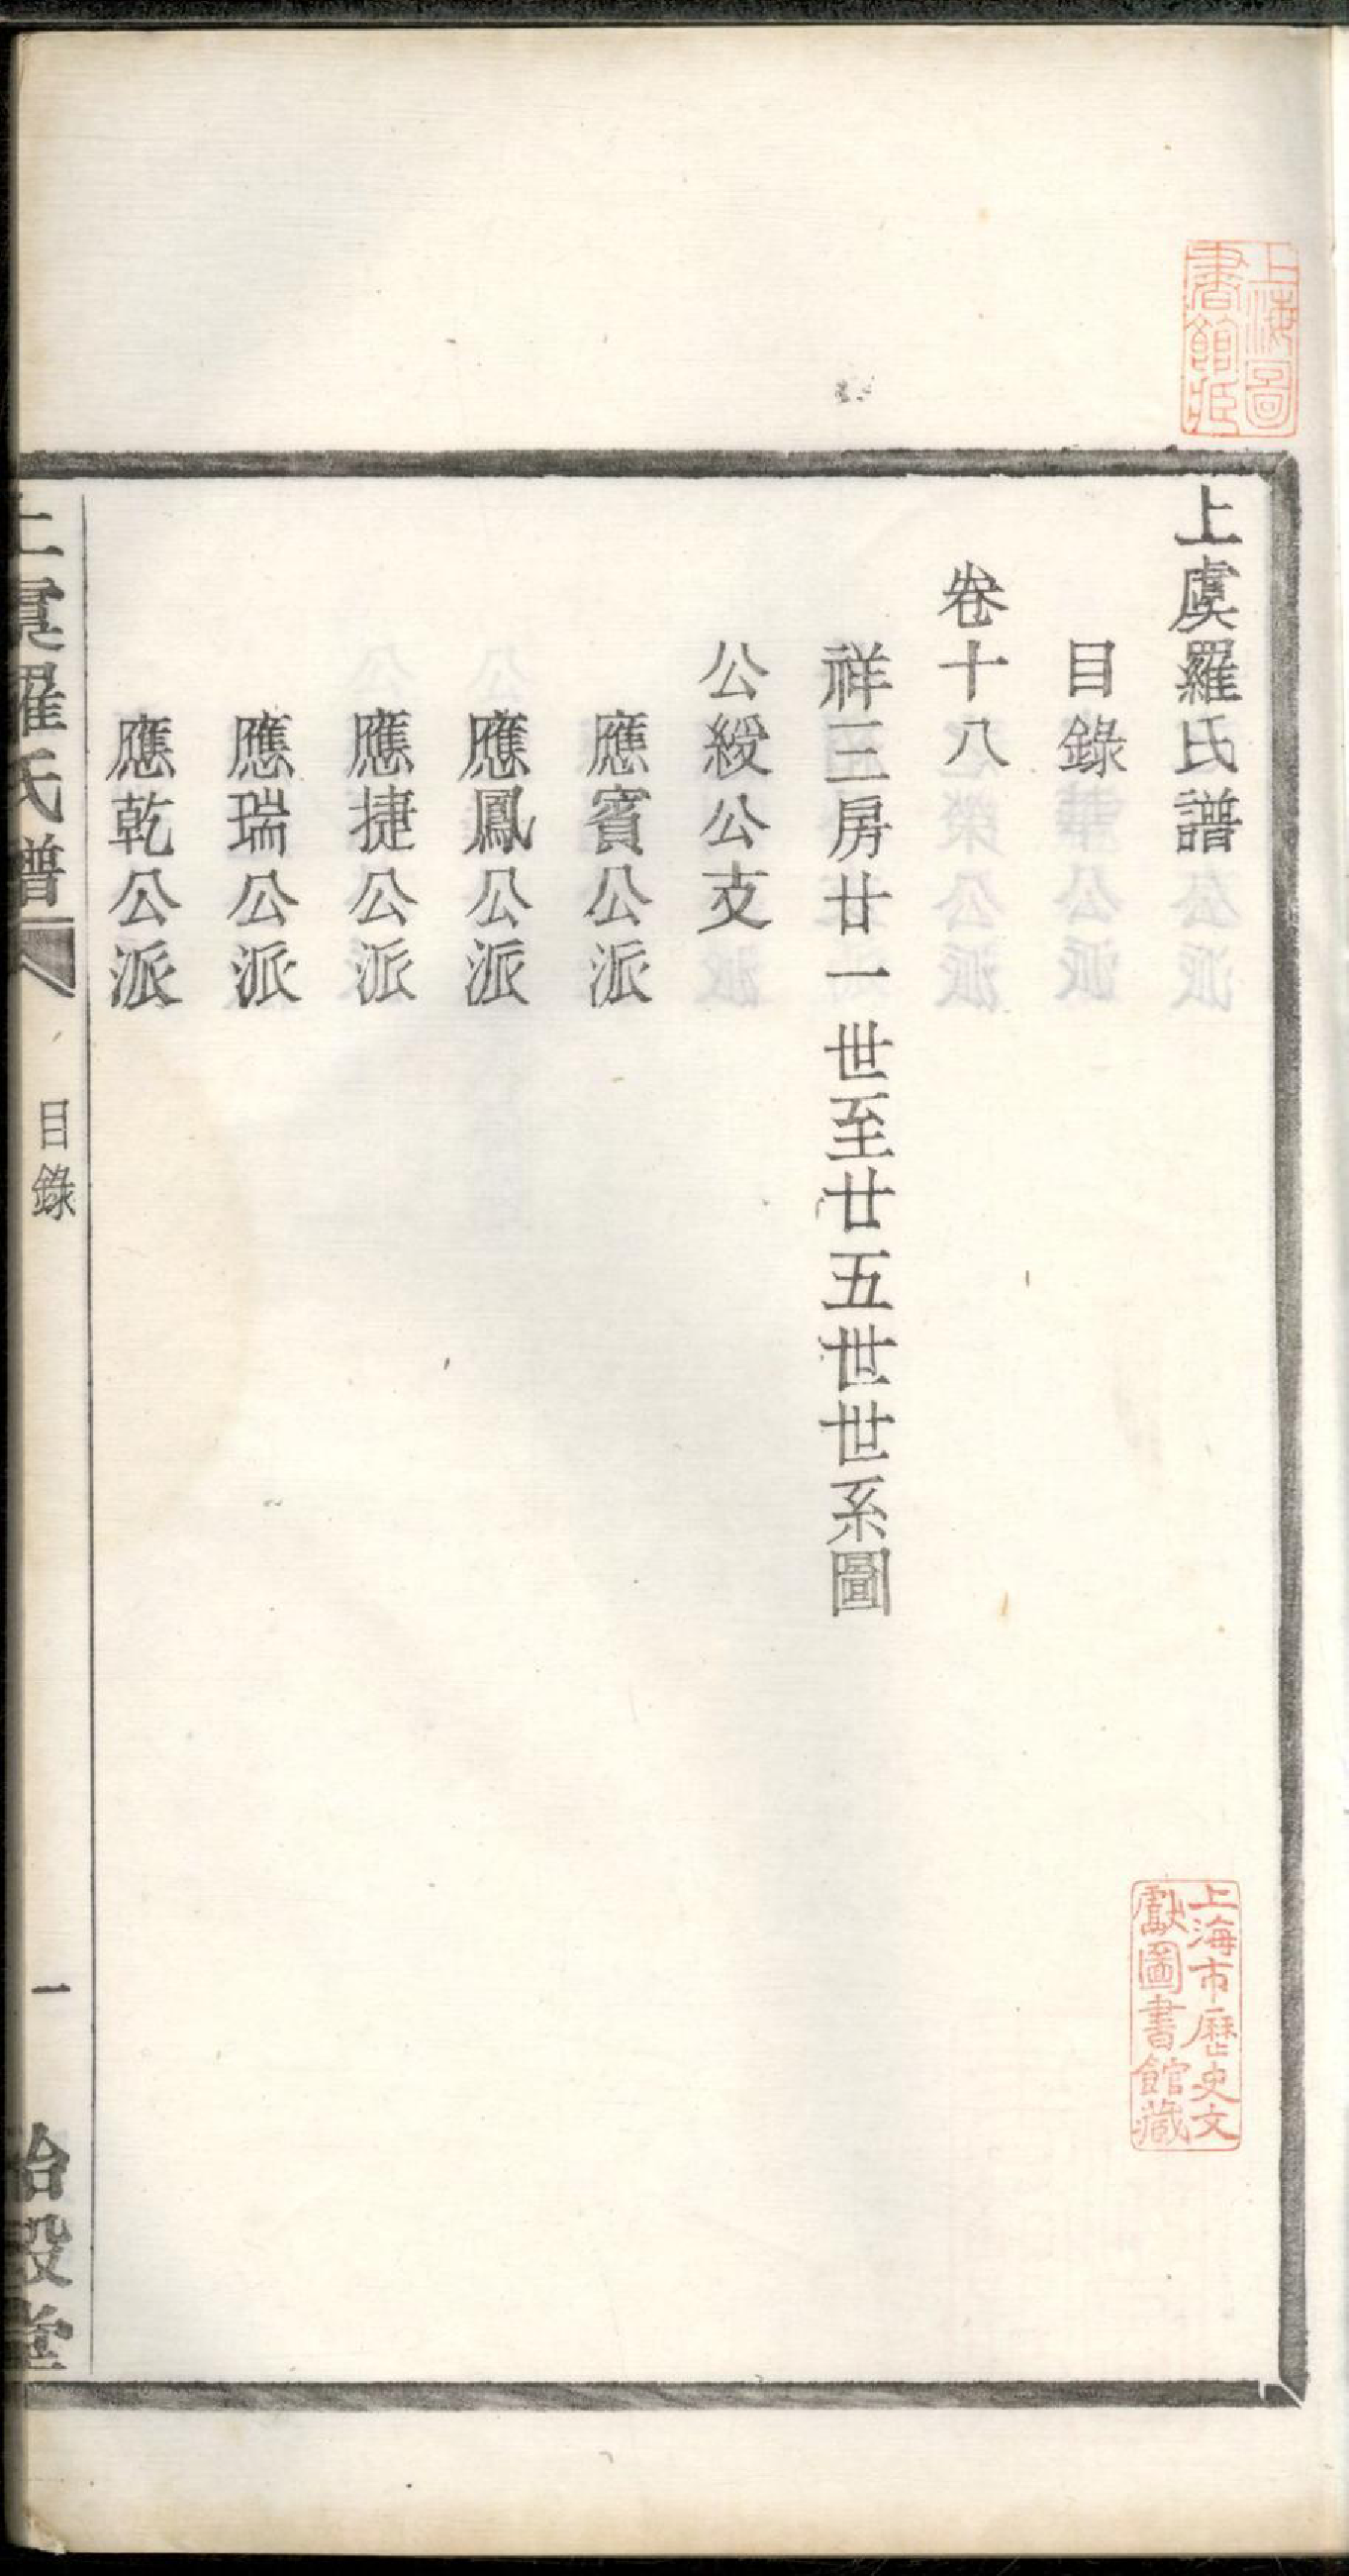 上虞羅氏譜
目錄
卷十八
祥三房廿一世至廿五世世系圖
公綬公支
應賓公派
應鳳公派
應捷公派
應瑞公派
應乾公派
上虞羅氏譜
目錄
一
詒穀堂
上海圖
書館藏
上海市歷史文
獻圖書館藏